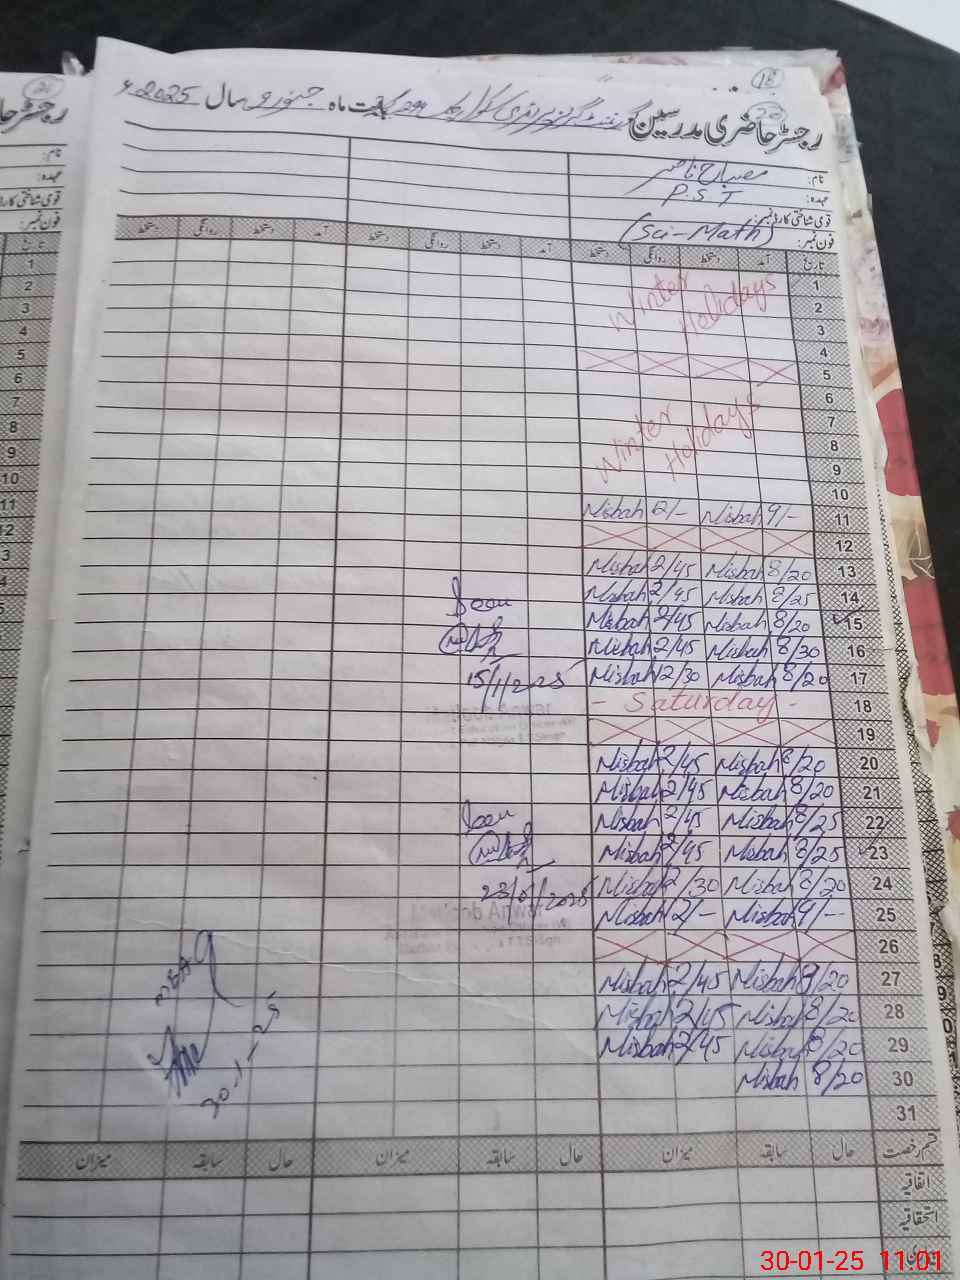 رجسٹر حاضری مدرسین گورنمنٹ گرلز پرائمری سکول ماہ جنوری سال 2025ء
نام: مصباح ناصر
عہدہ: P.S.T
قومی شناختی کارڈ نمبر:
فون نمبر: (Sci-Math)
تاریخ آمد دستخط روانگی دستخط آمد دستخط روانگی دستخط آمد دستخط روانگی دستخط
1
2 Winter
3 Holidays
4
5
6
7 Winter
8 Holidays
9
10
11 Misbah 9/- Misbah 2/-
12
13 Misbah 8/20 Misbah 2/45
14 Misbah 8/25 Misbah 2/45
15 Misbah 8/20 Misbah 2/45
16 Misbah 8/30 Misbah 2/45
17 Misbah 8/20 Misbah 12/30
15/1/2025
18 - Saturday -
19
20 Misbah 8/20 Misbah 2/45
21 Misbah 8/20 Misbah 2/45
22 Misbah 8/25 Misbah 2/45
23 Misbah 8/25 Misbah 2/45
24 Misbah 8/20 Misbah 2/30
23/01/2025
25 Misbah 9/- Misbah 2/-
26
27 Misbah 8/20 Misbah 2/45
28 Misbah 8/20 Misbah 2/45
29 Misbah 8/20 Misbah 2/45
30 Misbah 8/20
MEA
30-1-25
31
قسم رخصت حال سابقہ میزان حال سابقہ میزان حال سابقہ میزان
اتفاقیہ
استحقاقیہ
30-01-25 11:01